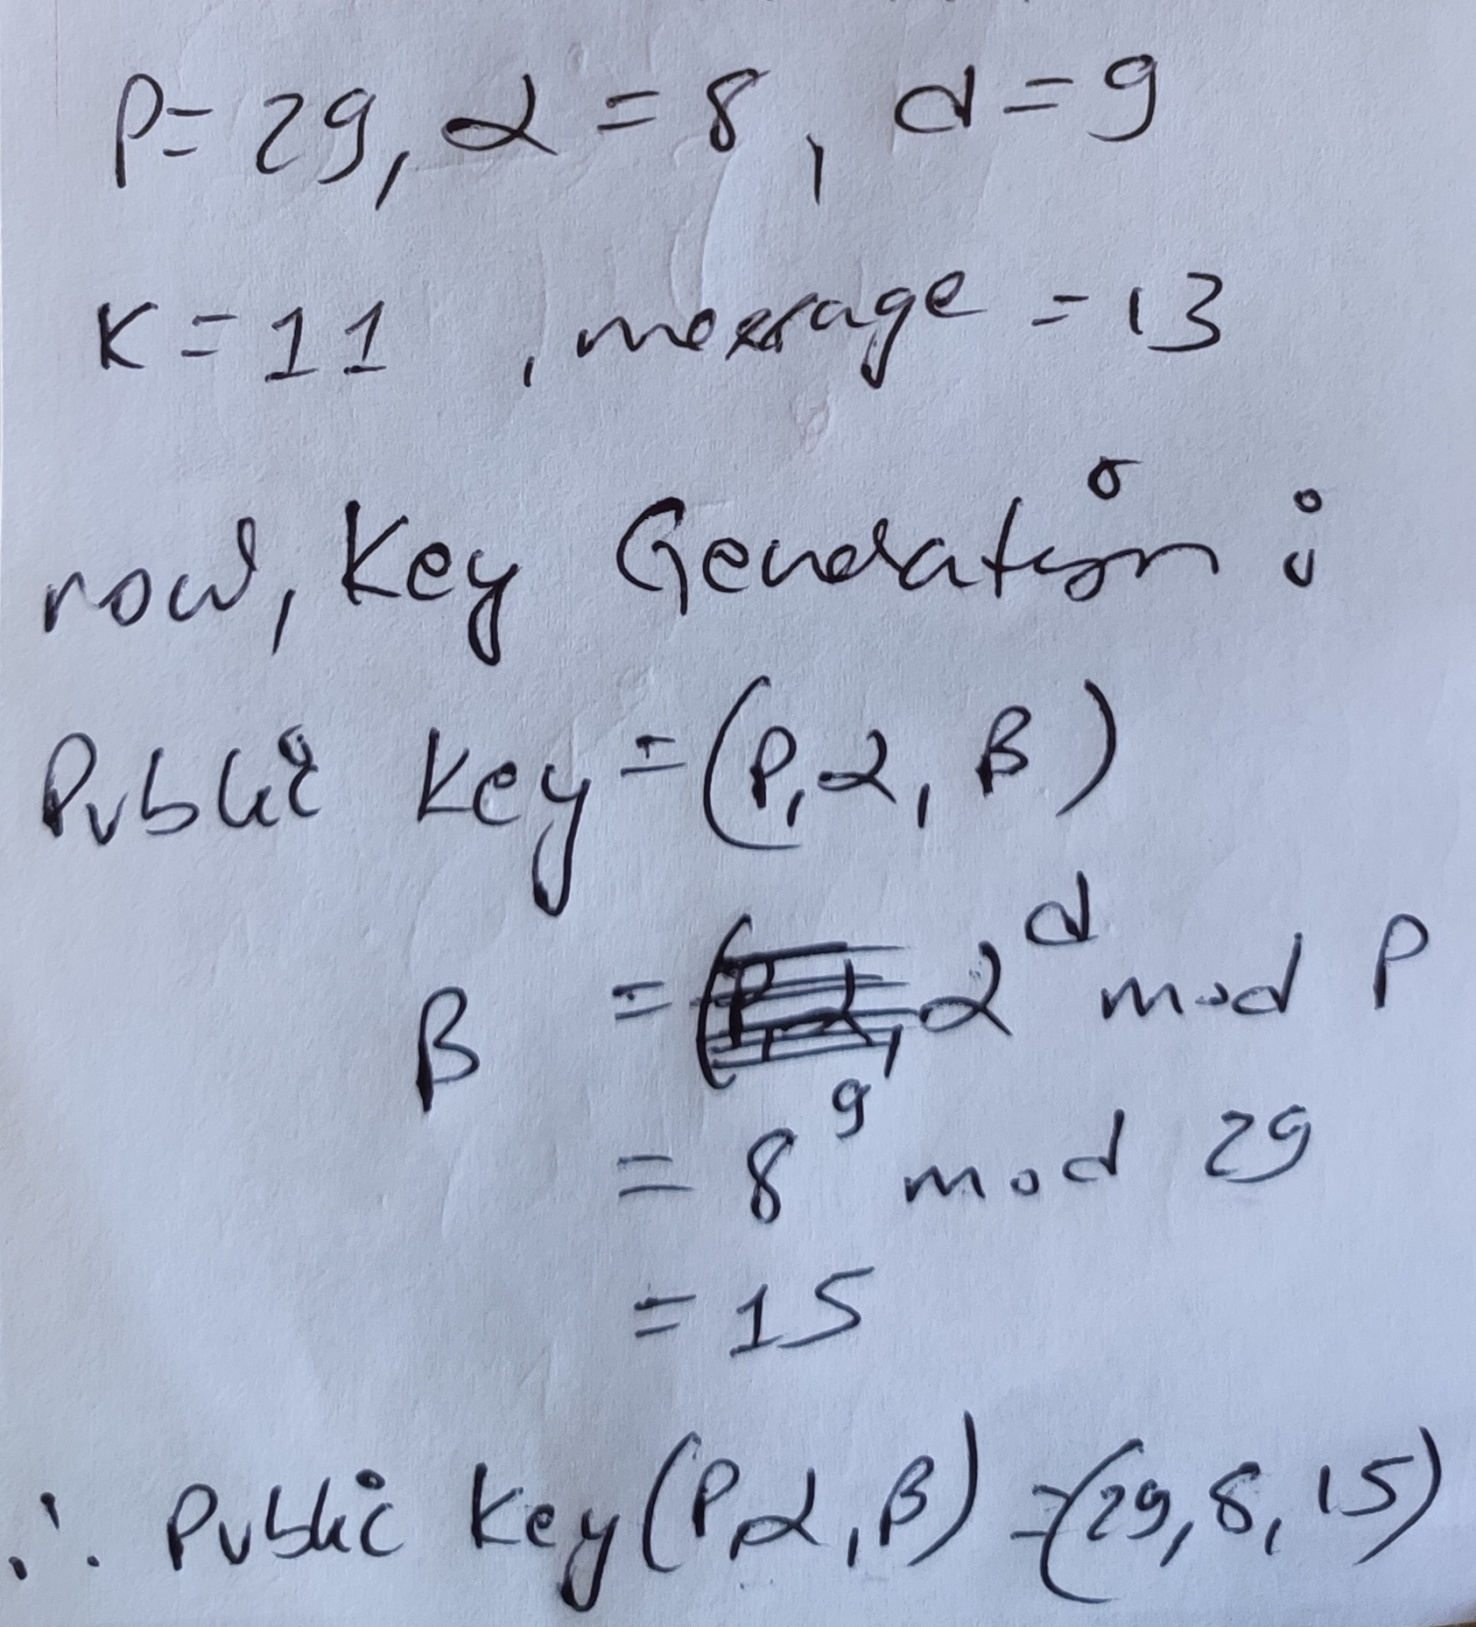 P = 29, α = 8, d = 9
K = 11, message = 13
now, Key Generation :
Public Key = (P, α, β)
β = α^d mod P
= 8^9 mod 29
= 15
∴ Public Key (P, α, β) = (29, 8, 15)